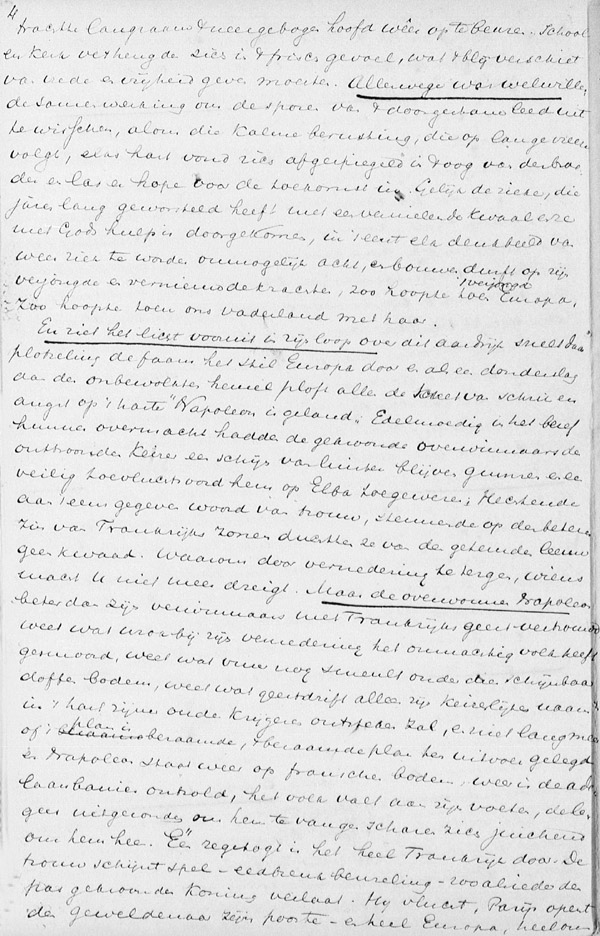 4
trachtte langzaam 't neergebogen hoofd weer op te beuren. School
en kerk verheugde zich in 't frisch gevoel, wat 't blij verschiet
van vrede en vrijheid geven mocht. Allerwege was welwillen
de samenwerking om de sporen van 't doorgestane leed uit
te wisschen, alom die kalme berusting, die op lange vreezen
volgt, elks hart vond zich afgespiegeld in 't oog van den broe
der en las er hope voor de toekomst in. Gelijk de zieke, die
jaren lang geworsteld heeft met een vernielende kwaal en ze
met Gods hulp is doorgekomen, in 't eerst elk denkbeeld van
weer ziek te worden onmogelijk acht, en bouwen durft op zijn
verjongde en vernieuwde krachten, zoo hoopte toen Europa,
zoo hoopte toen ons vaderland met haar.
En ziet het licht vooruit in zijn loop over dit aardrijk snelt daar
plotseling de faam het stil Europa door en als een donderslag
aan den onbewolkten hemel ploft alle de kreet van schrik en
angst op 't harte "Napoleon is geland". Edelmoedig in het besef
hunner overmacht hadden de gekroonde overwinnaars den
onttroonden Keizer een schijn van luister blijven gunnen en een
veilig toevluchtsoord hem op Elba toegewezen; Hechtende
aan 't eens gegeven woord van trouw, steunende op den beteren
zin van Frankrijks zonen duchtten ze van de getemden leeuw
geen kwaad. Waarom door vernedering te tergen, wiens
macht U niet meer dreigt. Maar de overwonnen Napoleon
beter dan zijn verwinnaars met Frankrijks geest vertrouwd
weet wat wrok bij zijn vernedering het onmachtig volk heeft
gesmoord, weet wat vuur nog smeult onder die schijnbaar
doffen bodem, weet wat geestdrift alleen zijn Keizerlijke naam
in 't hart zijner oude krijgers ontsteken zal, en niet lang meer
of 't plan is beraamd, 't beraamde plan ten uitvoer gelegd
en Napoleon staat weer op franschen bodem, weer is de ade
laarsbanier ontrold, het volk valt aan zijn voeten, de le
gers uitgezonden om hem te vangen scharen zich juichend
om hem heen. Eén zegetogt is het heel Frankrijk door. De
trouw schijnt spel - eedbreuk beuzeling - zooals ieder den
pas gekroonden Koning verlaat. Hij vlucht, Parijs opent
den geweldenaar zijn poorten - en heel Europa, heel ons